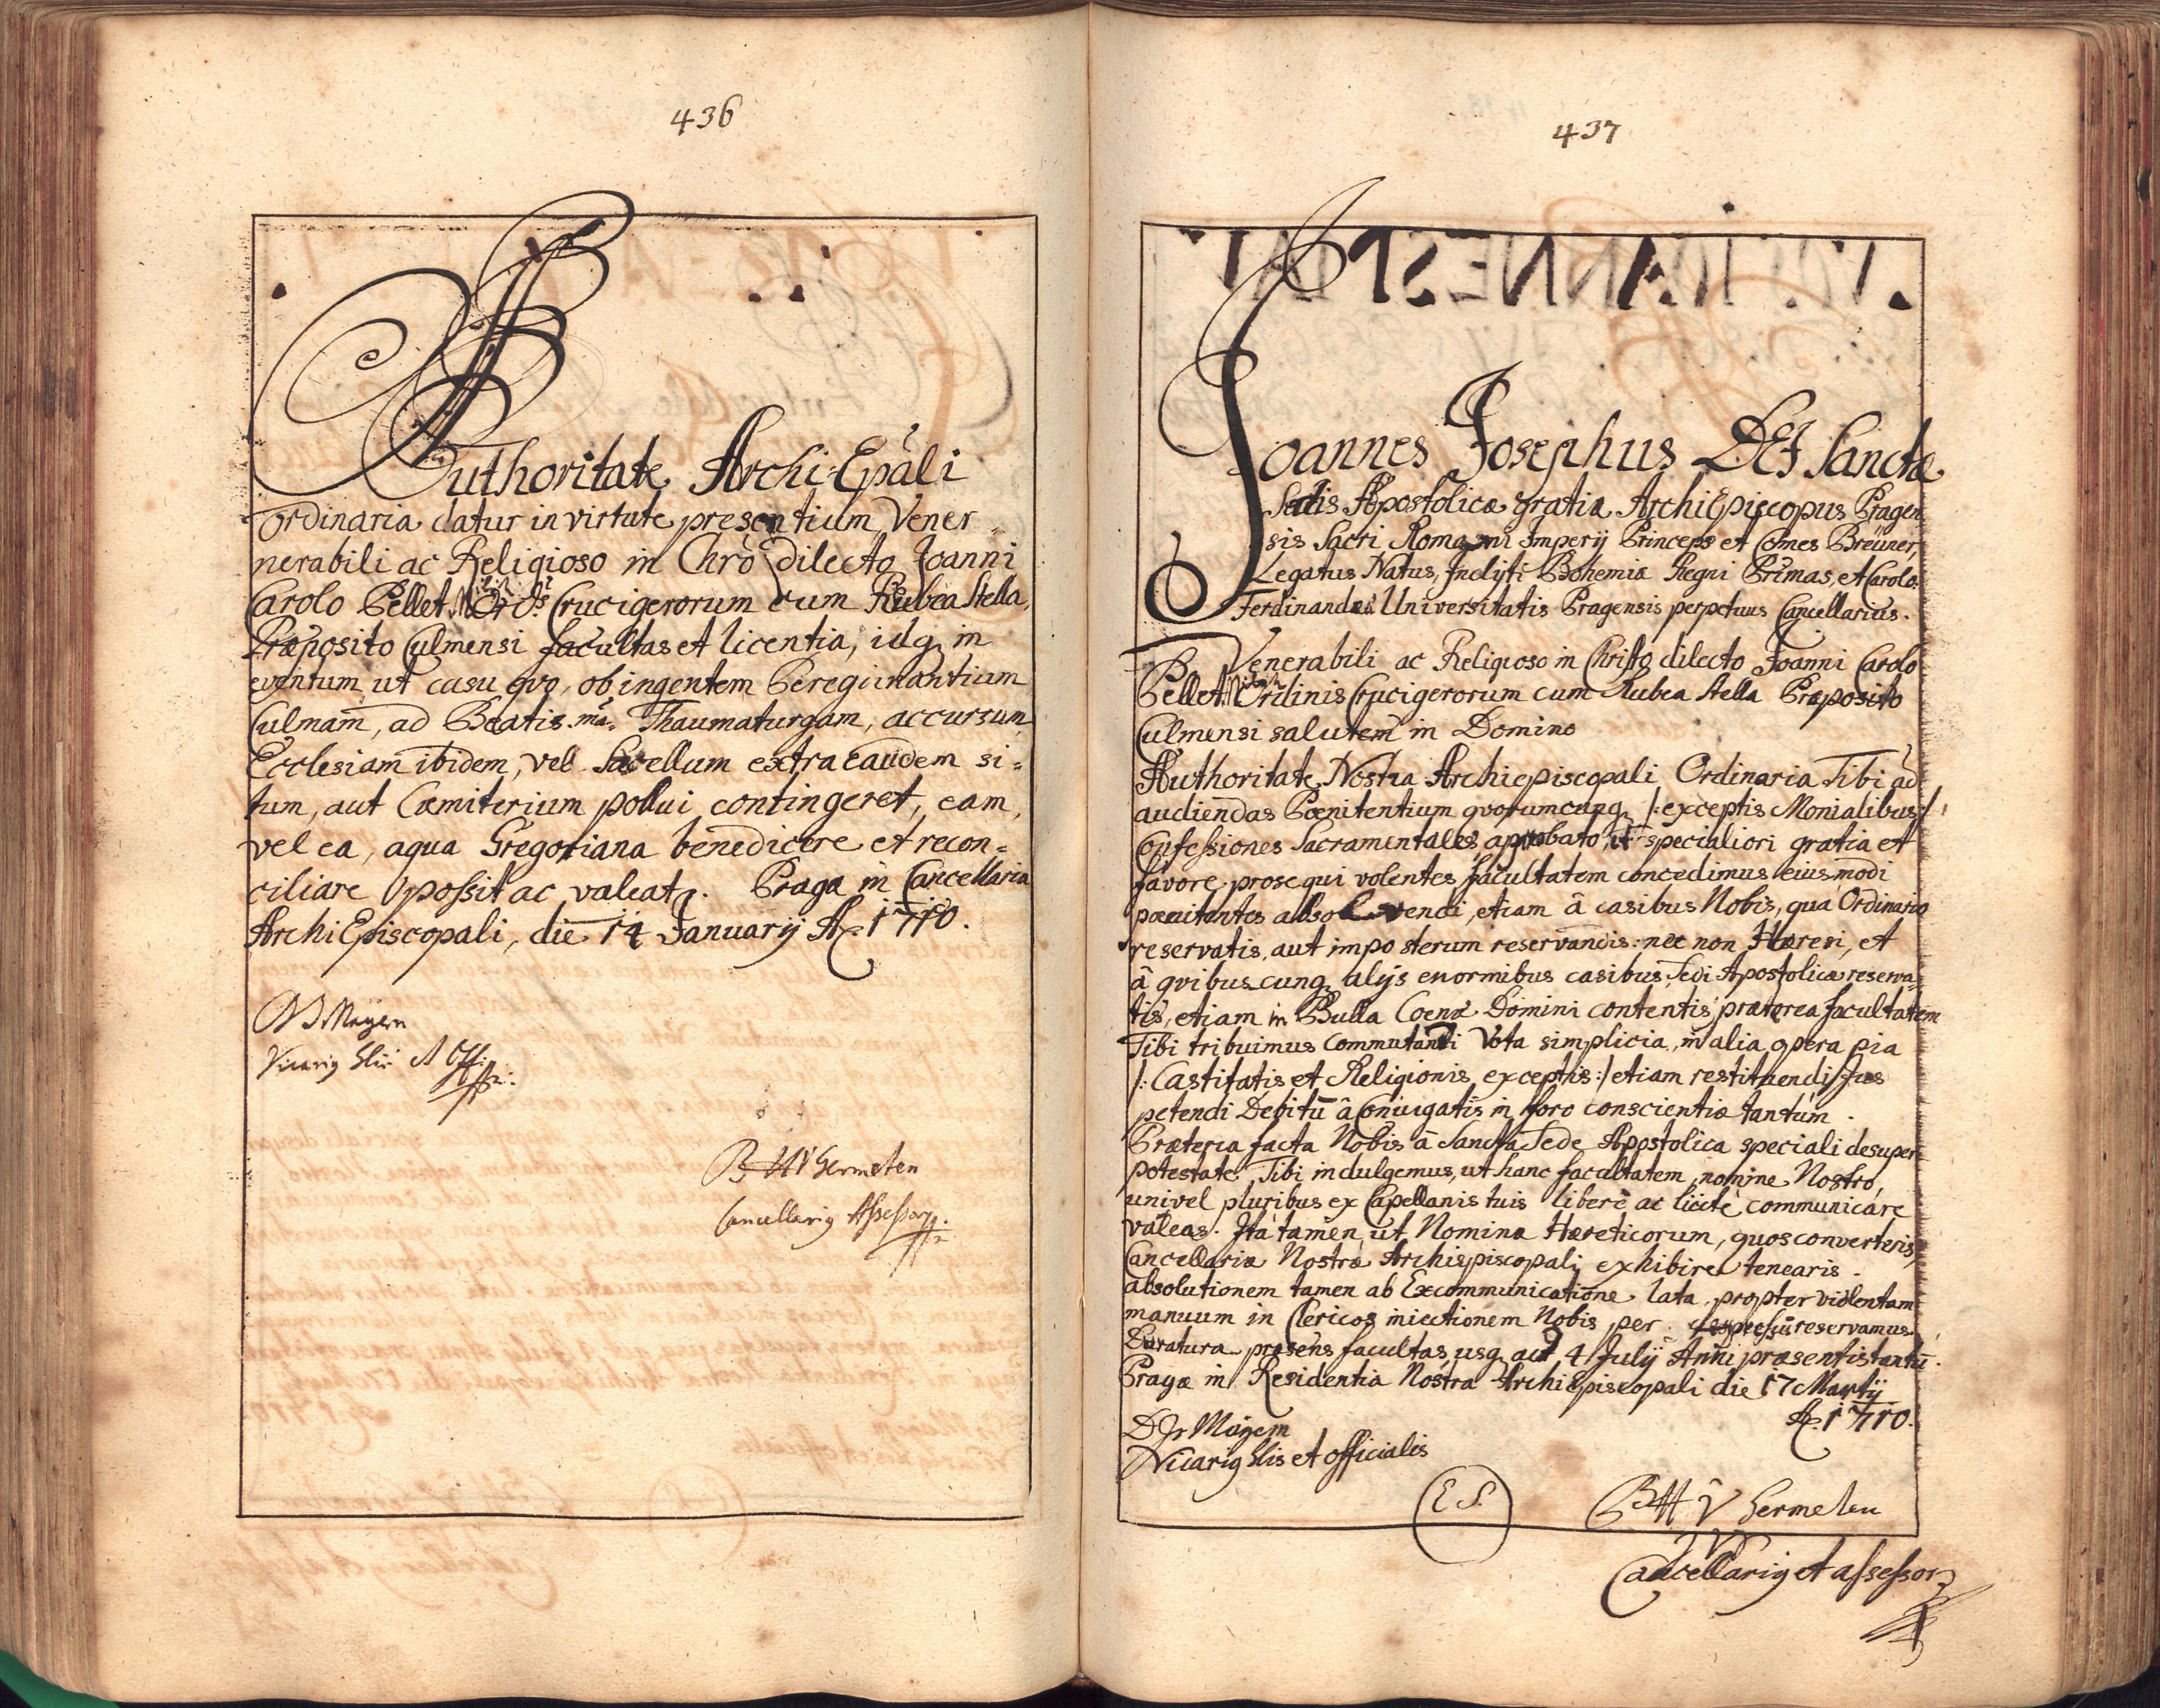 436
Authoritate Archi-Epâli
ordinaria datur in virtute presentium Vener=
nerabili ac Religioso in Chrô dilecto Joanni
Carolo Pellet Ord: Crucigerorum cum Rubea Stella,
Præposito Culmensi facultas et licentia, idq, in
eventum ut casu qvo, ob ingentem Peregrinantium
Culmam, ad Beatis.mã Thaumaturgam, accursum,
Ecclesiam ibidem, vel Sacellum extra eandem si=
tum, aut Cæmiterium pollui contingeret, eam,
vel ea, aqua Gregoriana benedicere et recon=
ciliare possit ac valeat. Pragæ in Cancellaria
ArchiEpiscopali, die 14 Januarij Aõ 1710.
Mayern
Vicariq Glis
B H V Germeten
Cancellariq Assessor
437
Joannes Josephus DEI Sanctæ
Sedis Apostolicæ gratia ArchiEpiscopus Pragen
sis Sacri Romani Imperij Princeps et Comes Breüner,
Legatus Natus, Inclyti Bohemiæ Regni Primas, et Carolo
Ferdinandeæ Universitatis Pragensis perpetuus Cancellarius.
Venerabili ac Religioso in Christo dilecto Joanni Carolo
Pellet Ordinis Crucigerorum cum Rubea Stella Præposito
Culmensi salutem in Domino
Authoritate Nostra Archiepiscopali Ordinaria Tibi ad
audiendas Pœnitentium qvorumcunq, /: exceptis Monialibus :/
Confessiones Sacramentales, approbato, specialiori gratia et
favore prosequi volentes facultatem concedimus eiusmodi
pœnitentes absolvendi, etiam â casibus Nobis, qua Ordinario
reservatis, aut imposterum reservandis: nec non Hæresi, et
â qvibuscunq, alijs enormibus casibus, Sedi Apostolicæ reserva=
tis, etiam in Bulla Coenæ Domini contentis præterea facultatem
Tibi tribuimus Commutandi Vota simplicia, in alia opera pia
/: Castitatis et Religionis exceptis :/ etiam restituendi Jus
petendi Debitũ â Coniugatis in foro conscientiæ tantùm.
Præterea facta Nobis â Sancta Sede Apostolica speciali desuper
potestate Tibi indulgemus, ut hanc facultatem, nomine Nostro,
uni vel pluribus ex Capellanis tuis liberè ac licitè communicare
valeas. Ita tamen, ut Nomina Hæreticorum, quos converteris,
Cancellariæ Nostræ Archiepiscopali exhibire tenearis.
absolutionem tamen ab Excommunicatione lata, propter violentam
manuum in Clericos iniectionem Nobis per expressũ reservamus.
Duratura præsens facultas usq, ad 4 Julij Anni præsentis tantũ.
Pragæ in Residentia Nostra ArchiEpiscopali die 17 Martij
Aõ 1710.
D Jr Mayern
Vicariq Glis et officialis
L S.
B H V Germeten
Cancellariq et assessor